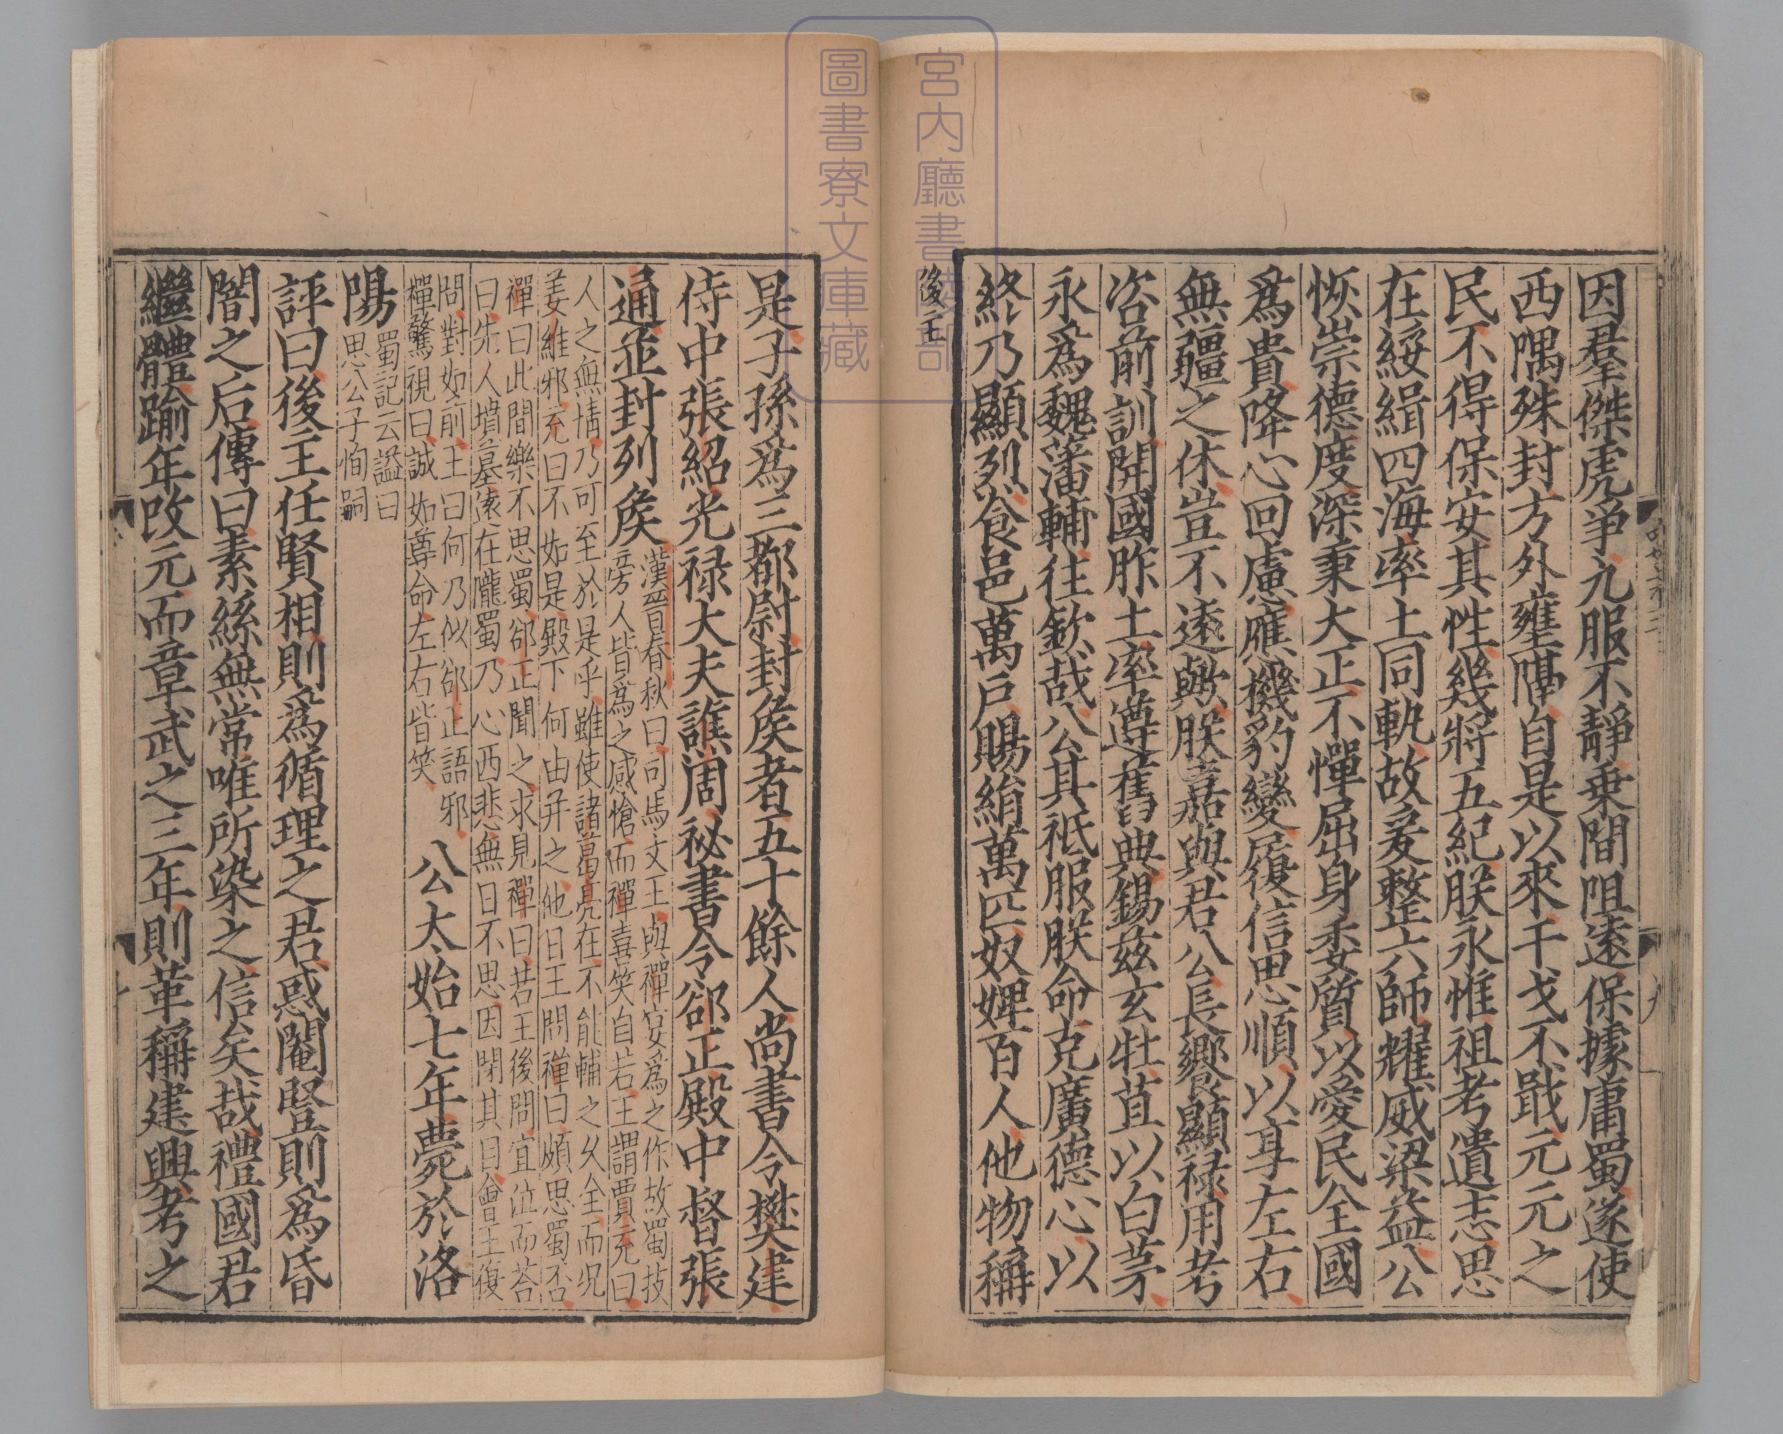 因羣傑虎爭九服不靜乗間阻逺保據庸蜀遂使
西隅殊封方外壅隔自是以來干戈不戢元元之
民不得保安其性幾將五紀朕永惟祖考遺志思
在綏緝四海率土同軌故爰整六師耀威梁益公
恢崇德度深秉大正不憚屈身委質以愛民全國
爲貴降心回慮應機豹變履信思順以享左右
無疆之休豈不逺歟朕嘉與君公長饗顯禄用考
咨前訓開國胙土率遵舊典錫兹玄牡苴以白茅
永爲魏藩輔往欽哉公其祗服朕命克廣德心以
終乃顯烈食邑萬戶賜絹萬匹奴婢百人他物稱
後主
是子孫爲三都尉封侯者五十餘人尚書令樊建
侍中張紹光禄大夫譙周祕書令郤正殿中督張
通並封列侯 漢晉春秋曰司馬文王與禪宴爲之作故蜀技
旁人皆爲之感愴而禪喜笑自若王謂賈充曰
人之無情乃可至於是乎雖使諸葛亮在不能輔之久全而况
姜維邪充曰不如是殿下何由并之他日王問禪曰頗思蜀否
禪曰此間樂不思蜀郤正聞之求見禪曰若王後問宜泣而荅
曰先人墳墓逺在隴蜀乃心西悲無日不思因閉其目會王復
問對如前王曰何乃似郤正語邪
禪驚視曰誠如尊命左右皆笑 公太始七年薨於洛
陽 蜀記云謚曰
思公子恂嗣
評曰後主任賢相則爲循理之君惑閹豎則爲昏
闇之后傳曰素絲無常唯所染之信矣哉禮國君
繼體踰年改元而章武之三年則革稱建興考之
宮内廳書陵部
圖書寮文庫藏